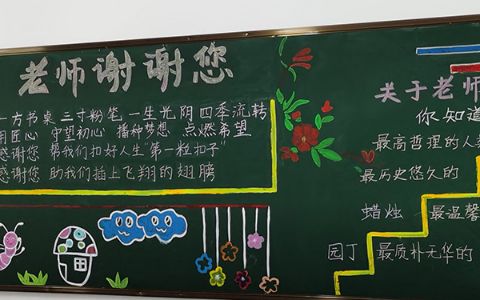 老师谢谢您
一方书桌 三寸粉笔 一生光阴 四季流转
用匠心 守望初心 播种梦想 点燃希望
感谢您 帮我们扣好人生"第一粒扣子"
感谢您 助我们插上飞翔的翅膀
关于老师
你知道
最高哲理的人
最历史悠久的
蜡烛 最温馨
园丁 最质朴无华的